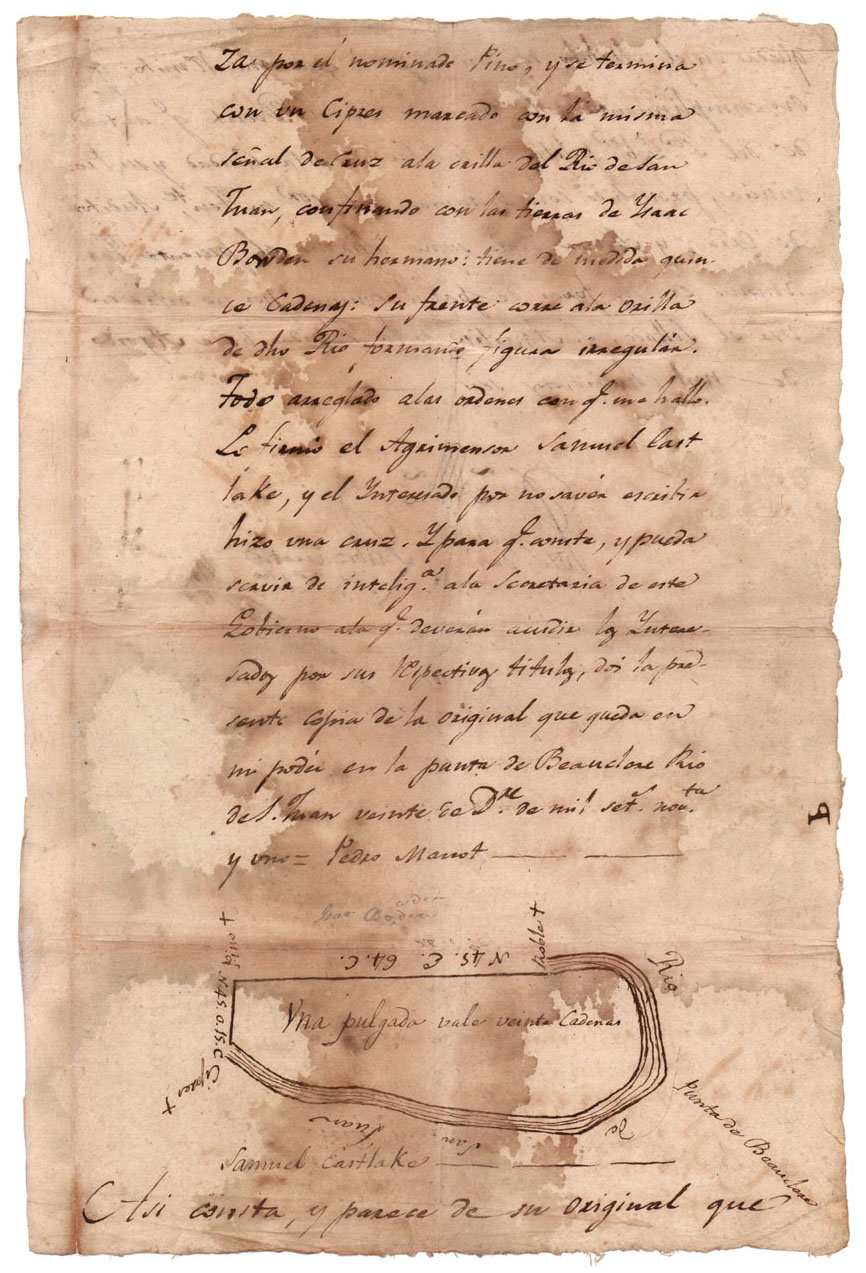 za por el nominado Pino, y se termina
con un Cipres marcado con la misma
señal de Cruz ala orilla del Rio de San
Juan, confinando con las tierras de Ysaac
Bowden su hermano: tiene de medida quin-
ce Cadenas: su frente corre ala orilla
de dho Rio formando figura irregulár.
Todo arreglado alas ordenes con q.e me hallo.
Lo firmó el Agrimensor Samuel East
lake, y el Ynteresado por no savér escrivir
hizo una cruz. Y para q.e conste, y pueda
servir de intelig.a ala Secretaria de este
Gobierno ala q.e deverán acudir los Yntere-
sados por sus respectivos titulos, doi la pre-
sente Copia de la original que queda en
mi podér en la punta de Beauclere Rio
de S. Juan veinte de D.re de mil set.s nov.ta
y uno = Pedro Marrot
Bowden
+ Pino N.45.O.15.C Cipres +
N.45.E. 64.C.
Roble +
Rio
Una pulgada vale veinte Cadenas
de
San
Juan
Punta de Beauclere
Samuel Eastlake
Asi consta, y parece de su original que